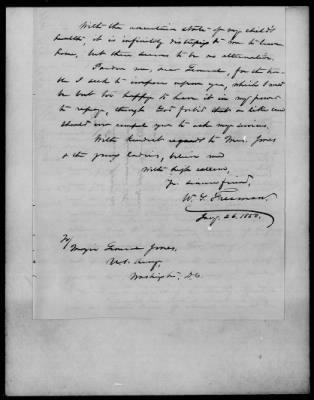 With the uncertain state of my child's
health, it is infinitely distressing to me to leave
home, but there seems to be no alternative.
Pardon me, dear General, for the trou-
ble I seek to impose upon you, which I will
be but too happy to have it in my power
to repay, though God forbid that a like cause
should ever compel you to ask my services.
With kindest regards to Mrs. Jones
& the young ladies, believe me
With high esteem,
Yr. sincere friend,
W. G. Freeman.
Jany. 26, 1856.
To/
General Jones,
U.S. Army,
Washington, D.C.